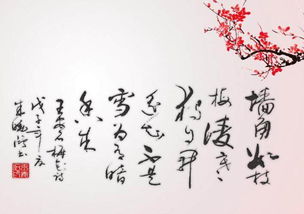 墙角数枝
梅凌寒
独自开
遥知不是
雪为有暗
香来
王安石梅花诗
戊子年夏